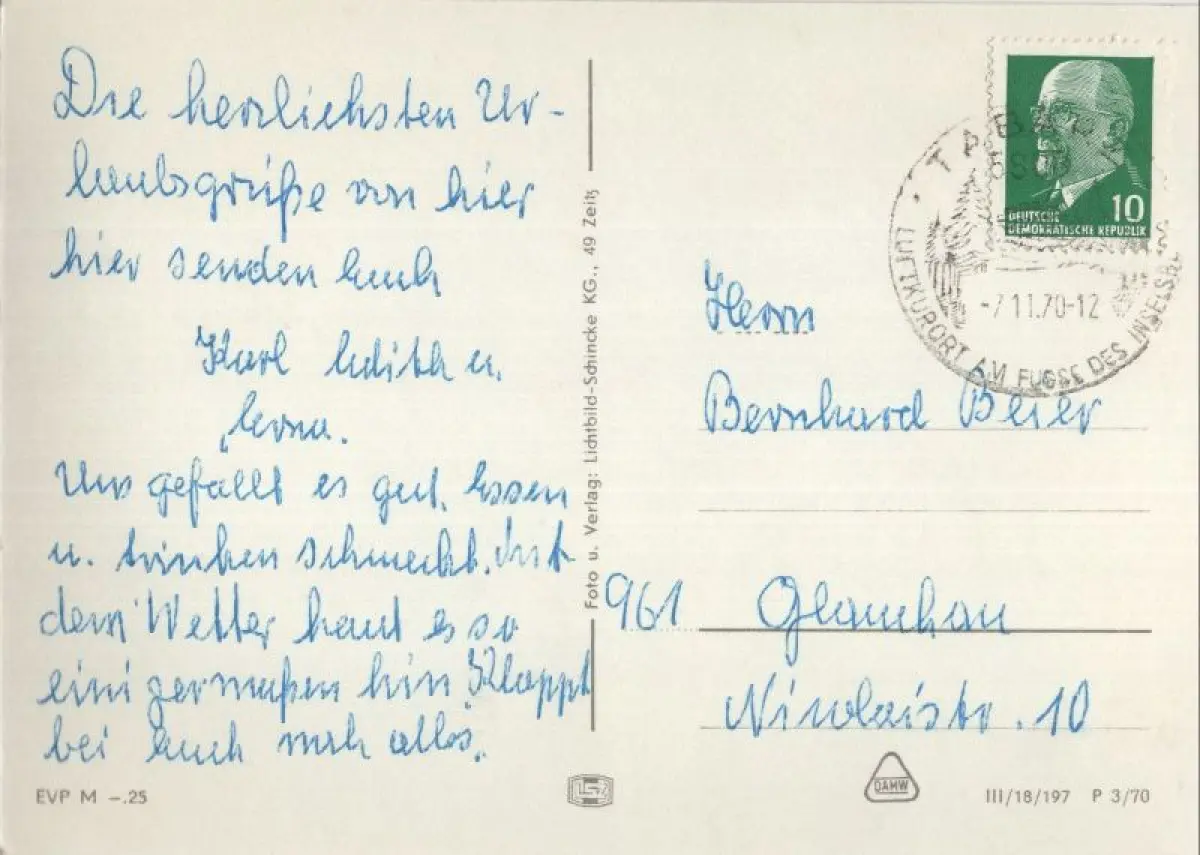 Die herzlichsten Ur-
laubsgrüße von hier
hier senden Euch
Karl Edith u.
Erna.
Uns gefällt es gut. Essen
u. trinken schmeckt. Mit
dem Wetter haut es so
einigermaßen hin. Klappt
bei Euch noch alles.
EVP M –.25
Foto u. Verlag: Lichtbild-Schincke KG., 49 Zeitz
DEUTSCHE
DEMOKRATISCHE REPUBLIK
10
TABARZ
LUFTKURORT AM FUSSE DES INSELSB
-7.11.70-12
Herrn
Bernhard Beier
961 Glauchau
Nicolaistr. 10
DAMW
III/18/197 P 3/70